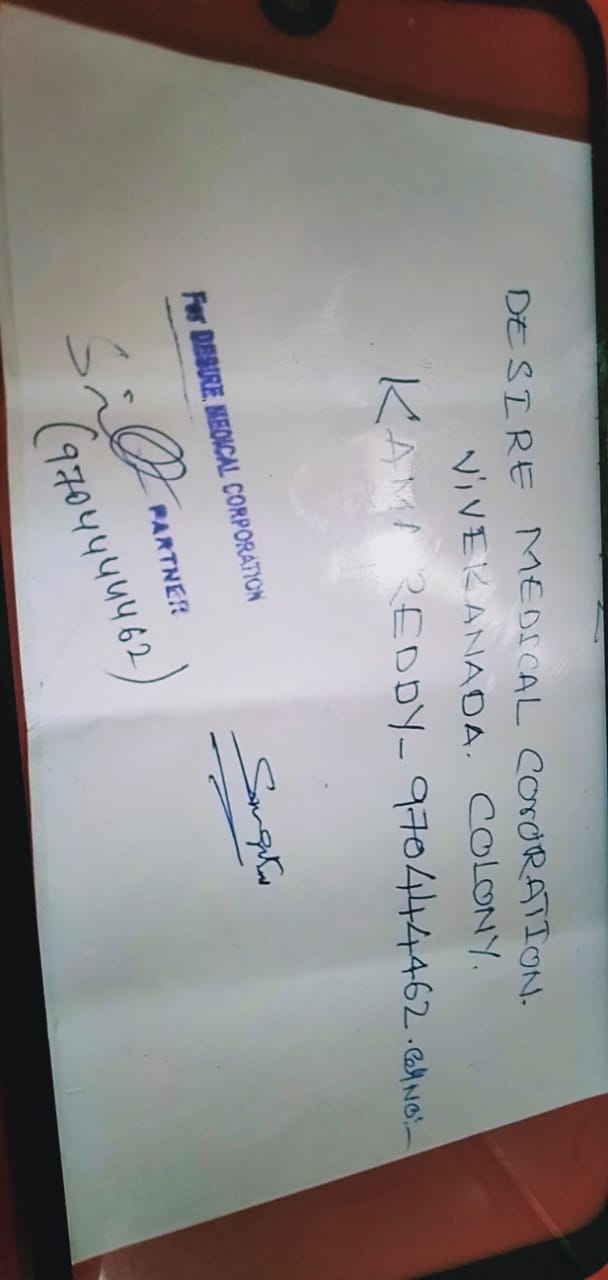 DESIRE MEDICAL CORORATION.
ViVEKANADA. COLONY.
KAMAREDDY- 970444462. Cell NO:-
For DESIRE MEDICAL CORPORATION
PARTNER
(9704444462)